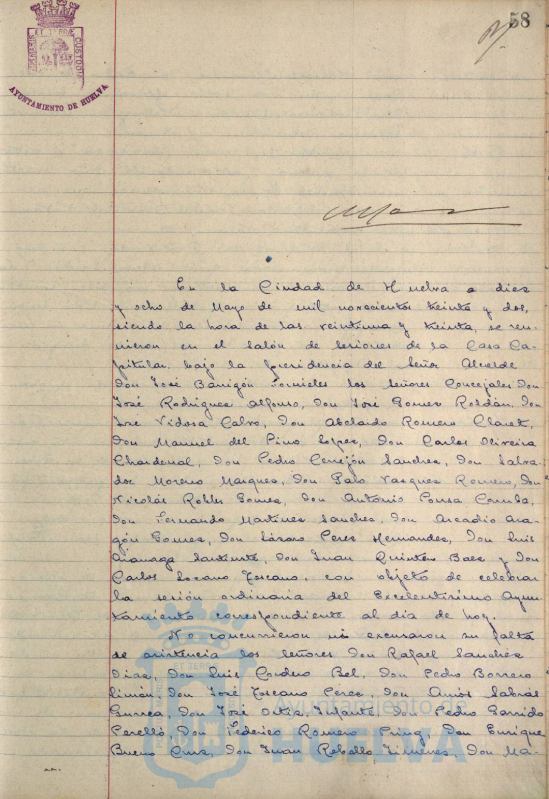 58
PORTUS MARIS ET TERRAE CUSTODIA
AYUNTAMIENTO DE HUELVA
En la Ciudad de Huelva a diez
y ocho de Mayo de mil novecientos treinta y dos,
siendo la hora de las veintiuna y treinta, se reu-
nieron en el salón de sesiones de la Casa Ca-
pitular, bajo la presidencia del Señor Alcalde
Don José Barrigón Fornieles los señores Concejales Don
José Rodríguez Alfonso, Don José Gomez Roldán, Don
José Vidosa Calvo, Don Abelardo Romero Claret,
Don Manuel del Pino Lopez, Don Carlos Oliveira
Chardenal, Don Pedro Cerrejón Sanchez, Don Salva-
dor Moreno Marquez, Don Pablo Vasquez Romero, Don
Nicolás Robles Gomez, Don Antonio Ponsa Camba,
Don Fernando Martinez Sanchez, Don Arcadio Ara-
gón Gomez, Don Lázaro Perez Hernandez, Don Luis
Don Juan Quintero Baez y Don
Carlos Lozano Toscano, con objeto de celebrar
la sesión ordinaria del Excelentísimo Ayun-
tamiento correspondiente al dia de hoy.
No concurrieron ni excusaron su falta
de asistencia los señores Don Rafael Sanchez
Diaz, Don Luis Cordero Bel, Don Pedro Borrero
Limón, Don José Toscano Perez, Don Amós Sabrás
Gurrea, Don José Ortiz Infante, Don Pedro Garrido
Perelló, Don Federico Romero Pring, Don Enrique
Bueno Cruz, Don Juan Rebollo Jimenez, Don Ma-
Ayuntamiento de
HUELVA